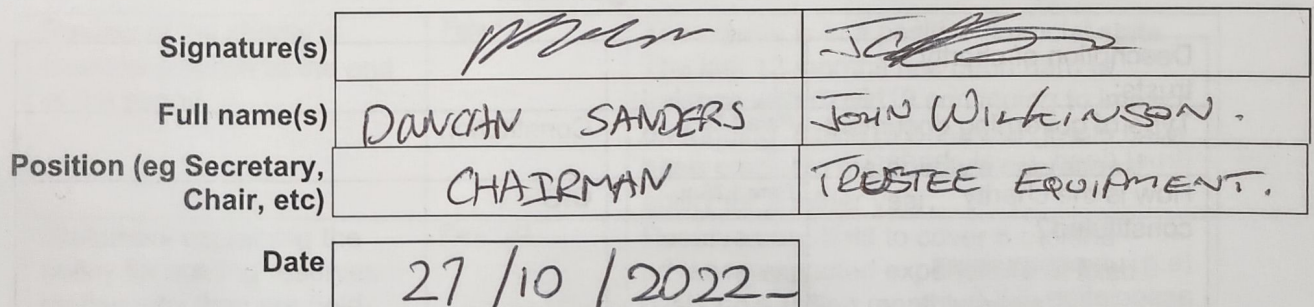 Signature(s)
Full name(s) DUNCAN SANDERS JOHN WILKINSON.
Position (eg Secretary, CHAIRMAN TRUSTEE EQUIPMENT.
Chair, etc)
Date 27/10/2022